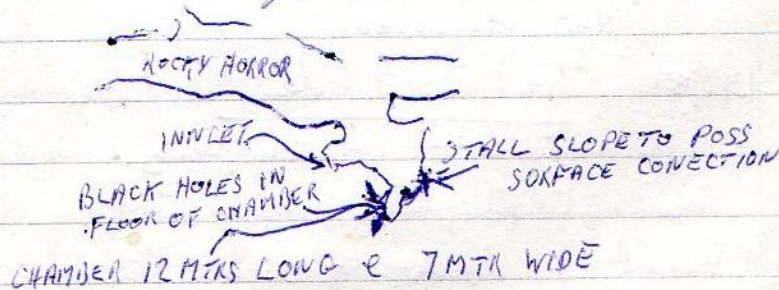 ROCKY HORROR
INNLET
STALL SLOPE TO POSS
SURFACE CONECTION
BLACK HOLES IN
FLOOR OF CHAMBER
CHAMBER 12 MTRS LONG e 7 MTR WIDE